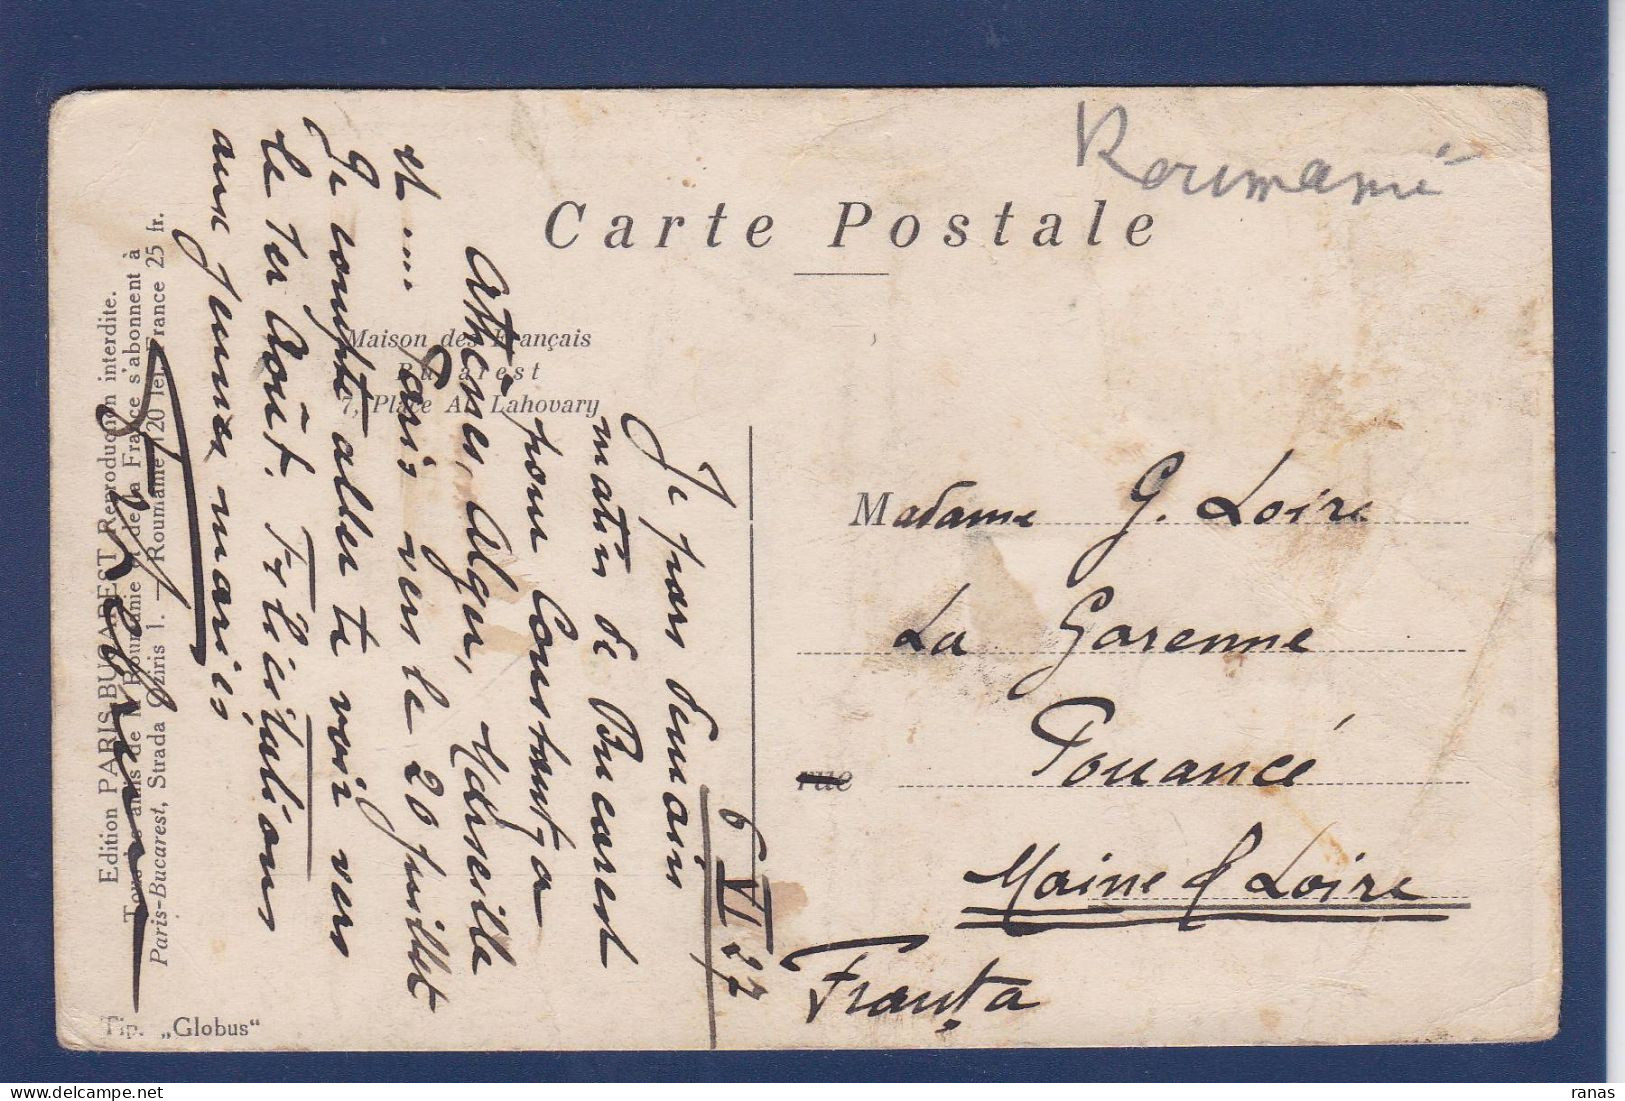 Roumanie
Carte Postale
Maison des Français
Bucarest
7, Place Al. Lahovary
6 VI 27
Je pars demain
matin de Bucarest
pour Constantza
Athènes, Alger, Marseille
et .... Paris vers le 20 juillet
Je compte aller te voir vers
le 1er Août. Félicitations
aux jeunes mariés
Madame G. Loire
La Garenne
rue Pouancé
Maine & Loire
Franța
Edition PARIS-BUCAREST Reproduction interdite.
Tous les amis de la Roumanie et de la France s'abonnent à
Paris-Bucarest, Strada Oziris 1. — Roumanie 120 lei, France 25 fr.
Tip. „Globus"
ranas